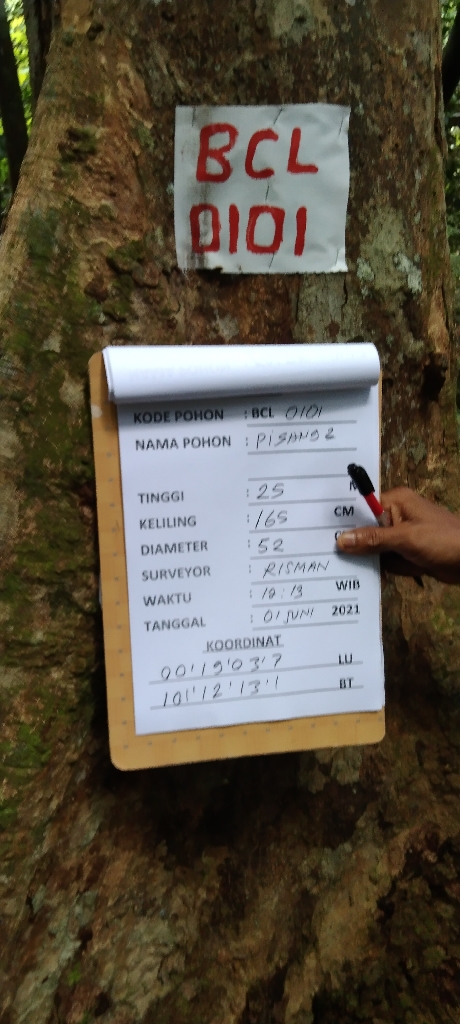 BCL
0101
KODE POHON : BCL 0101
NAMA POHON : PISANG2
TINGGI : 25 M
KELILING : 165 CM
DIAMETER : 52
SURVEYOR : RISMAN
WAKTU : 10:13 WIB
TANGGAL : 01 JUNI 2021
KOORDINAT
00'19'03'7 LU
101'12'13'1 BT